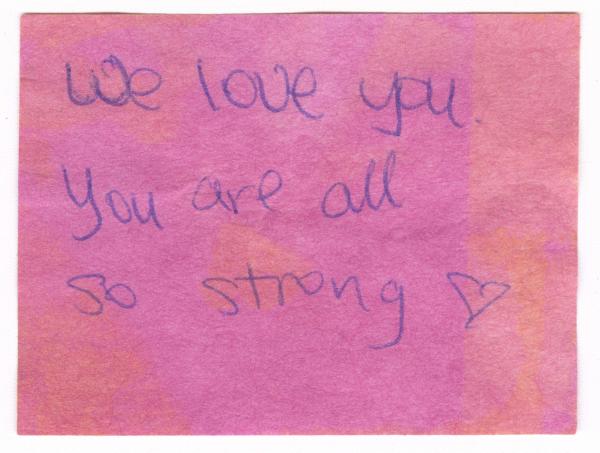 We love you.
You are all
so strong ♡